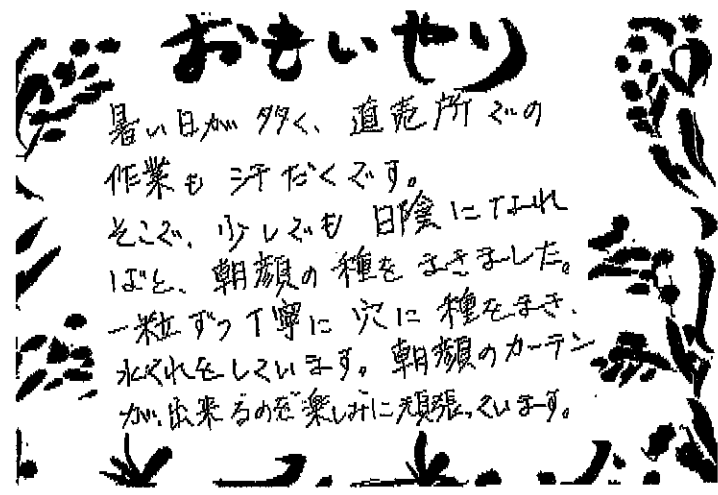 おもいやり
暑い日が多く、直売所での
作業も汗だくです。
そこで、少しでも日陰になれ
ばと、朝顔の種をまきました。
一粒ずつ丁寧に穴に種をまき、
水くれをしています。朝顔のカーテン
が、出来るのを楽しみに頑張っています。